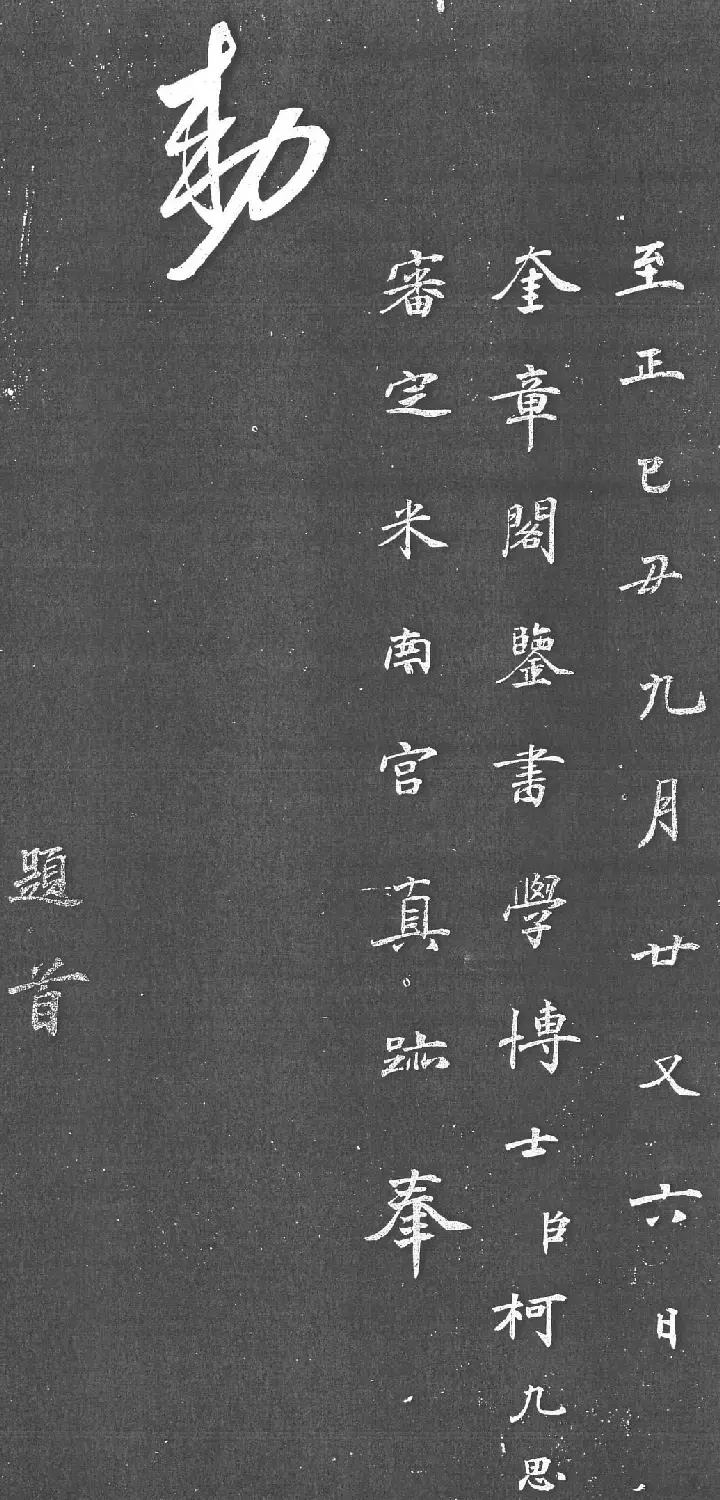 至正己丑九月廿又六日
奎章閣鑒書學博士臣柯九思
審定米南宮真跡奉
勅
題首